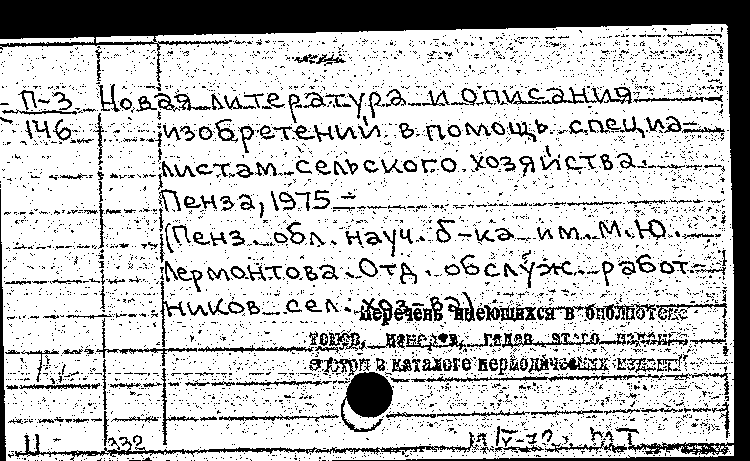 П-3 Новая литература и описания
146 изобретений в помощь специа-
листам сельского хозяйства.
Пенза, 1975 -
(Пенз. обл. науч. б-ка им. М.Ю.
Лермонтова. Отд. обслуж. работ-
ников сел. хоз-ва)
Перечень имеющихся в библиотеке
томов, номеров, годов этого издания
смотри в каталоге периодических изданий
11 332